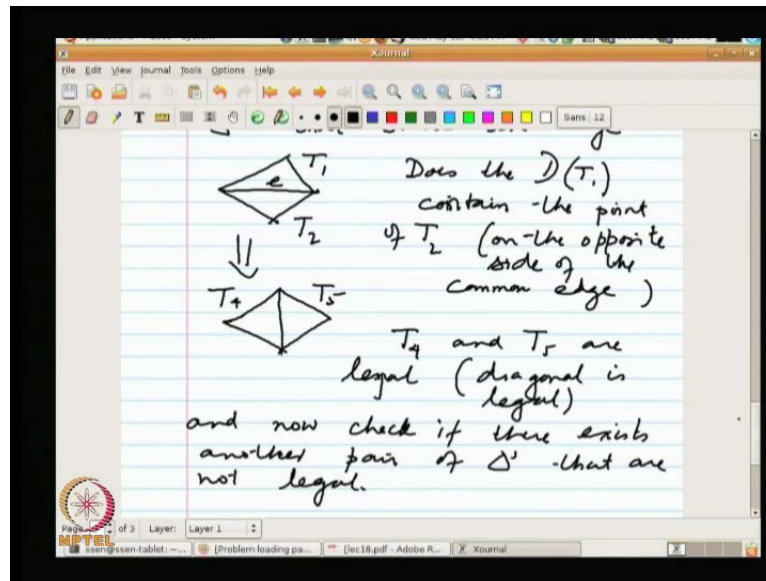 Xournal
File Edit View Journal Tools Options Help
Sans 12
T1
e
T2
Does the D(T1)
contain the point
of T2 (on the opposite
side of the
common edge)
T4 T5
T4 and T5 are
legal (diagonal is
legal)
and now check if there exists
another pair of Δs that are
not legal.
Page of 3 Layer: Layer 1
NPTEL
ssen@ssen-tablet: ~... [Problem loading pa... [lec18.pdf - Adobe R... Xournal